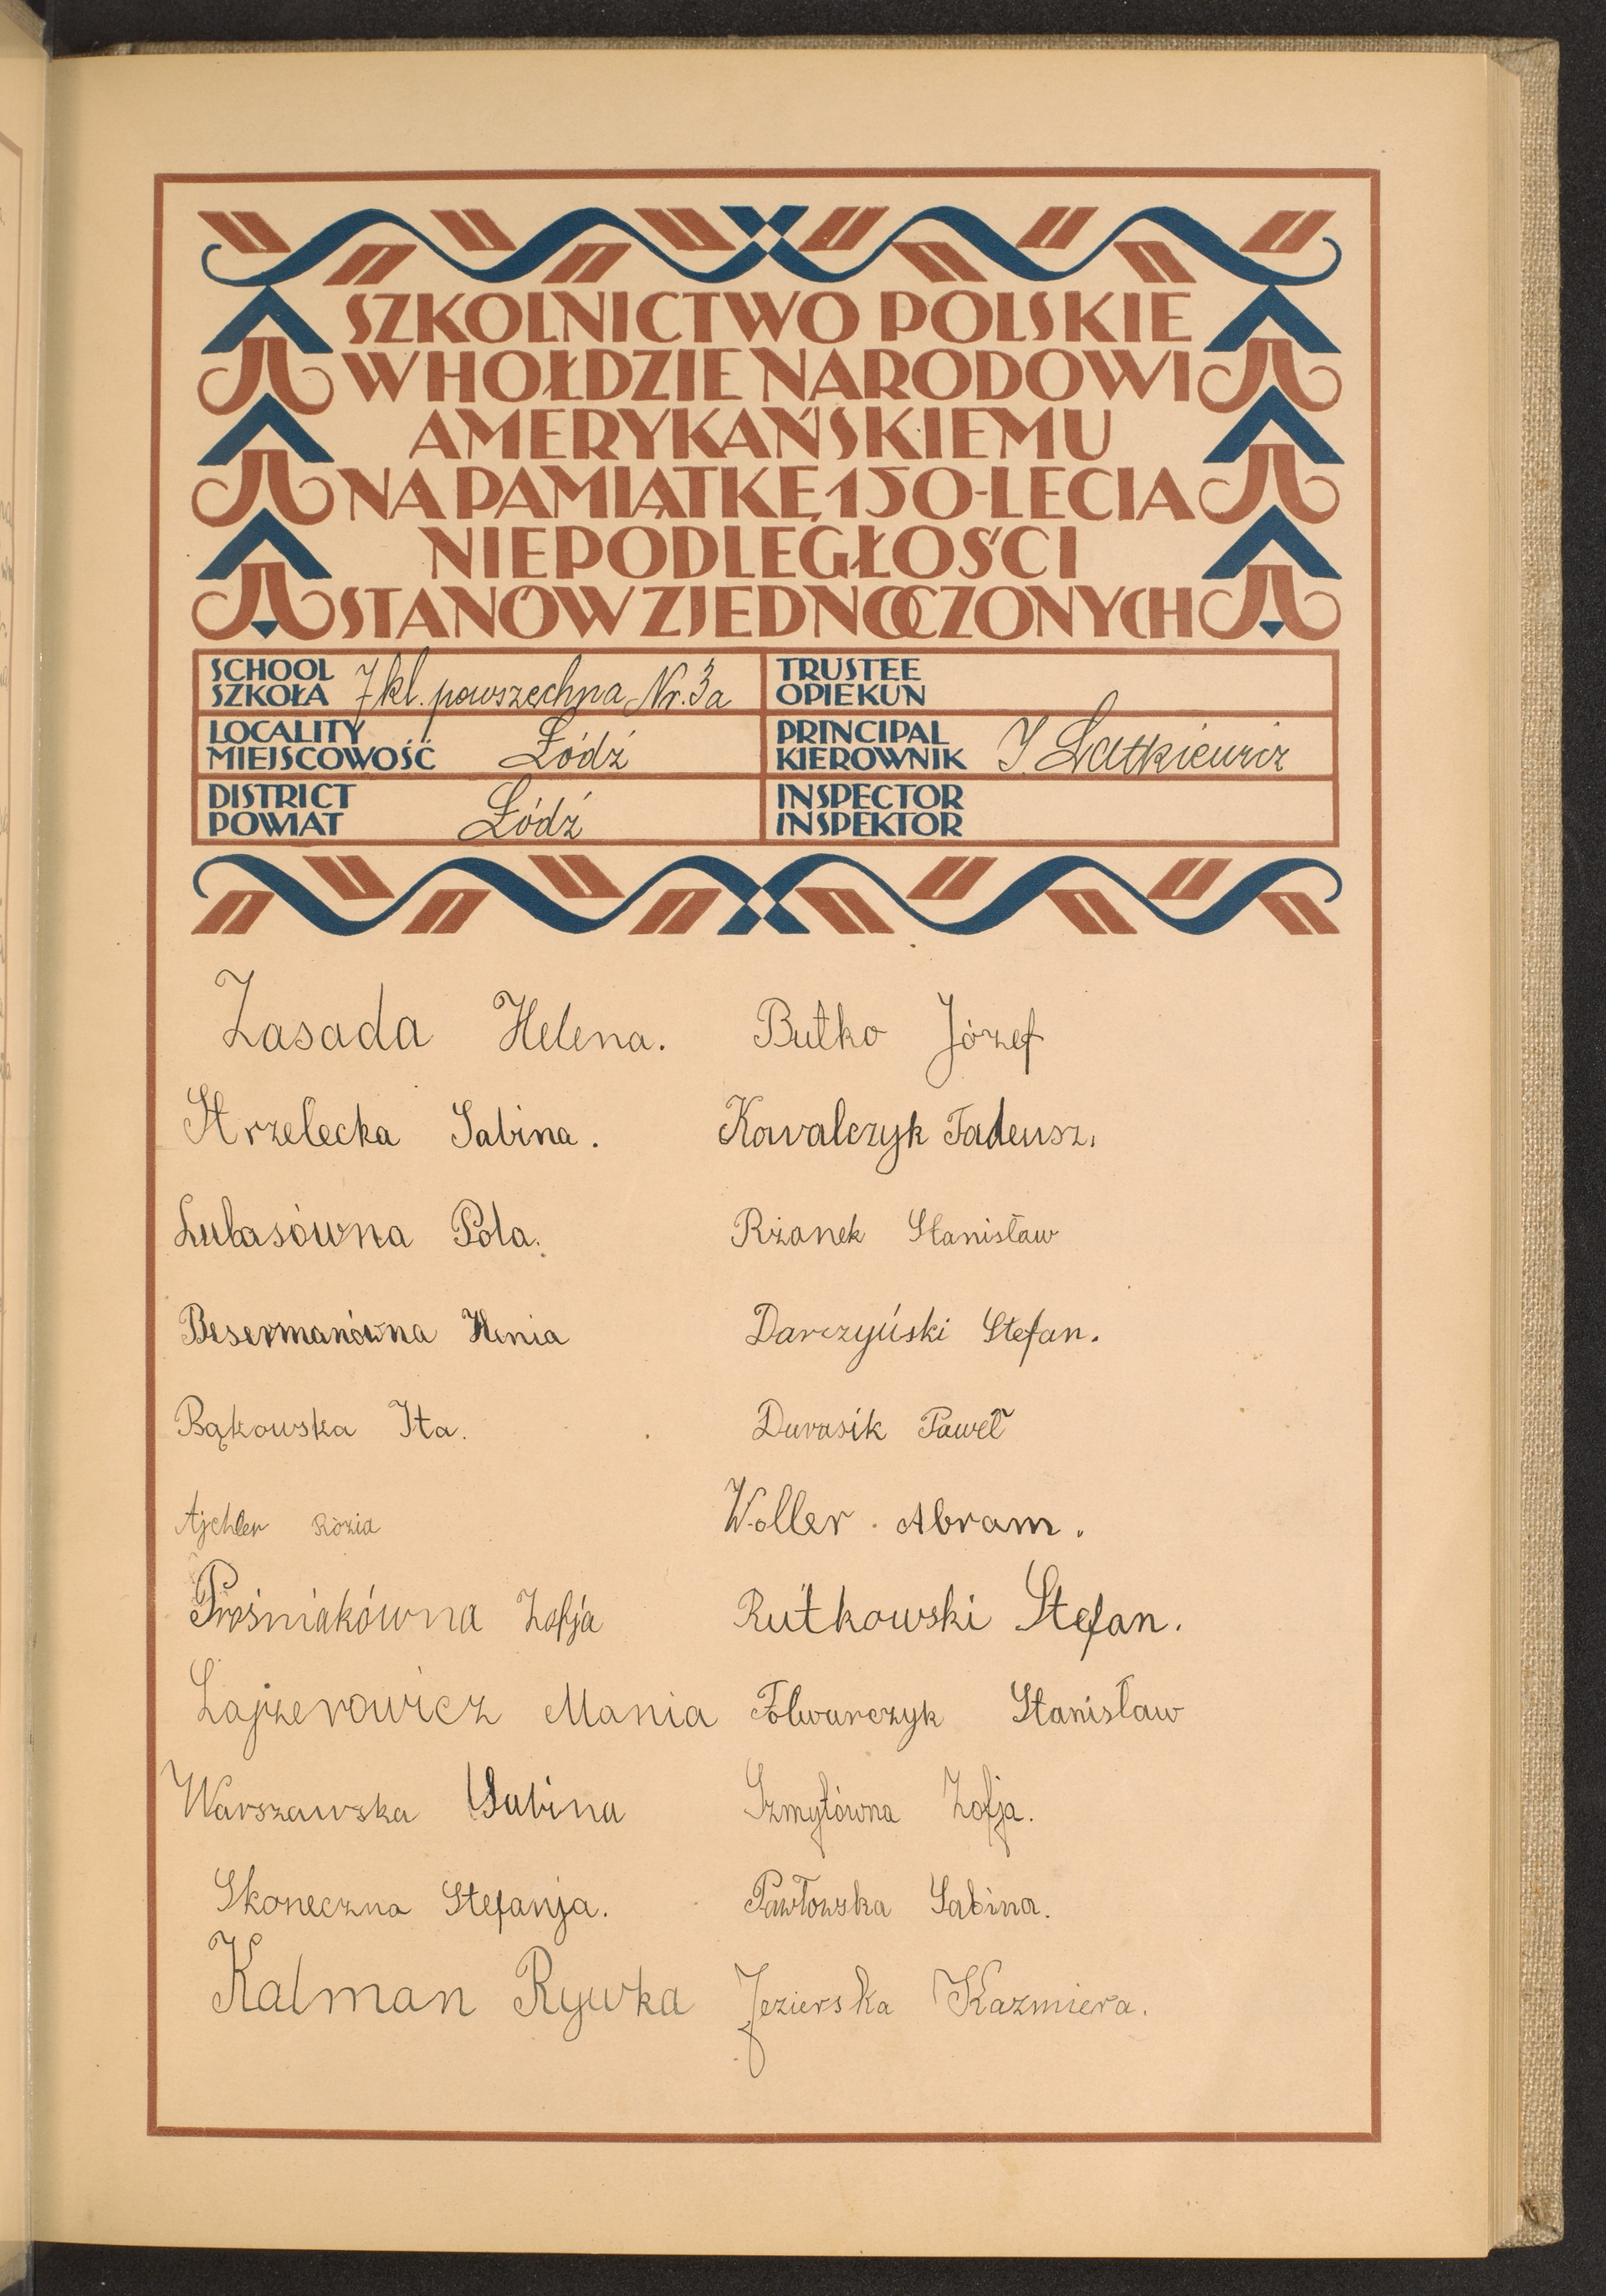 SZKOLNICTWO POLSKIE
W HOŁDZIE NARODOWI
AMERYKAŃSKIEMU
NA PAMIĄTKĘ 150-LECIA
NIEPODLEGŁOŚCI
STANÓW ZJEDNOCZONYCH
SCHOOL
SZKOŁA 7 kl. powszechna Nr. 3a
TRUSTEE
OPIEKUN
LOCALITY
MIEJSCOWOŚĆ Łódź
PRINCIPAL
KIEROWNIK J. Łatkiewicz
DISTRICT
POWIAT Łódź
INSPECTOR
INSPEKTOR
Zasada Helena.
Strzelecka Sabina.
Lubasówna Pola.
Besermanówna Henia
Bąkowska Ita.
Ajchler Rózia
Prośniakówna Zofja
Lajzerowicz Mania
Warszawska Sabina
Skoneczna Stefanja.
Kalman Rywka
Butko Józef
Kowalczyk Tadeusz.
Rżanek Stanisław
Darczyński Stefan.
Durasik Paweł
Woller Abram.
Rutkowski Stefan.
Folwarczyk Stanisław
Szmytówna Zofja.
Pawłowska Sabina.
Jezierska Kazmiera.